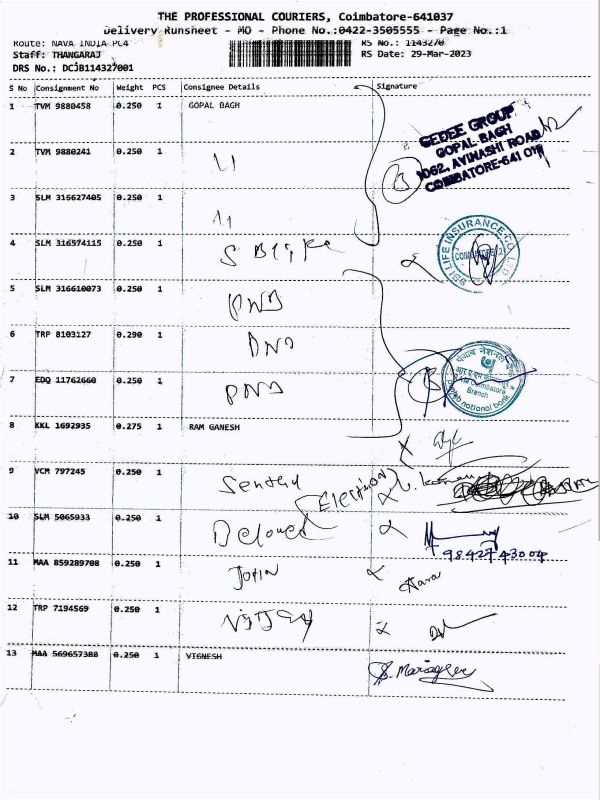 THE PROFESSIONAL COURIERS, Coimbatore-641037
Delivery Runsheet - MO - Phone No.:0422-3505555 - Page No.:1
Route: NAVA INDIA PC4 RS No.: 1143270
Staff: THANGARAJ RS Date: 29-Mar-2023
DRS No.: DCJB114327001
S No Consignment No Weight PCS Consignee Details Signature
1 TVM 9880458 0.250 1 GOPAL BAGH
GEDEE GROUP
GOPAL BAGH
1062, AVINASHI ROAD
COIMBATORE-641 018
2 TVM 9880241 0.250 1
3 SLM 316627405 0.250 1
4 SLM 316574115 0.250 1 S B Life
SBI LIFE INSURANCE CO. LTD
5 SLM 316610073 0.250 1 PNB
6 TRP 8103127 0.290 1 PNB
7 EDQ 11762660 0.250 1 PNB
पंजाब नैशनल
Coimbatore
Branch
punjab national bank
8 KKL 1692935 0.275 1 RAM GANESH
9 VCM 797245 0.250 1 Senthil
(Election)
10 SLM 5065933 0.250 1
98427 43004
11 MAA 859289708 0.250 1 John
12 TRP 7194569 0.250 1 Vijay
13 MAA 569657388 0.250 1 VIGNESH